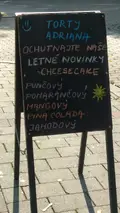 TORTY
ADRIANA
OCHUTNAJTE NAŠE
LETNÉ NOVINKY
CHEESECAKE
PUNČOVÝ
POMARANČOVÝ
MANGOVÝ
PINA COLADA
JAHODOVÝ